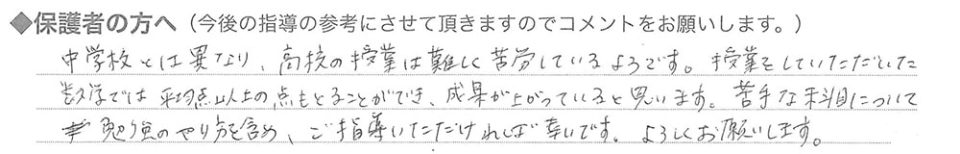 ◆保護者の方へ（今後の指導の参考にさせて頂きますのでコメントをお願いします。）
中学校とは異なり、高校の授業は難しく苦労しているようです。授業をしていただいた
数学では平均点以上の点もとることができ、成果が上がっていると思います。苦手な科目について
勉強のやり方を含め、ご指導いただければ幸いです。よろしくお願いします。